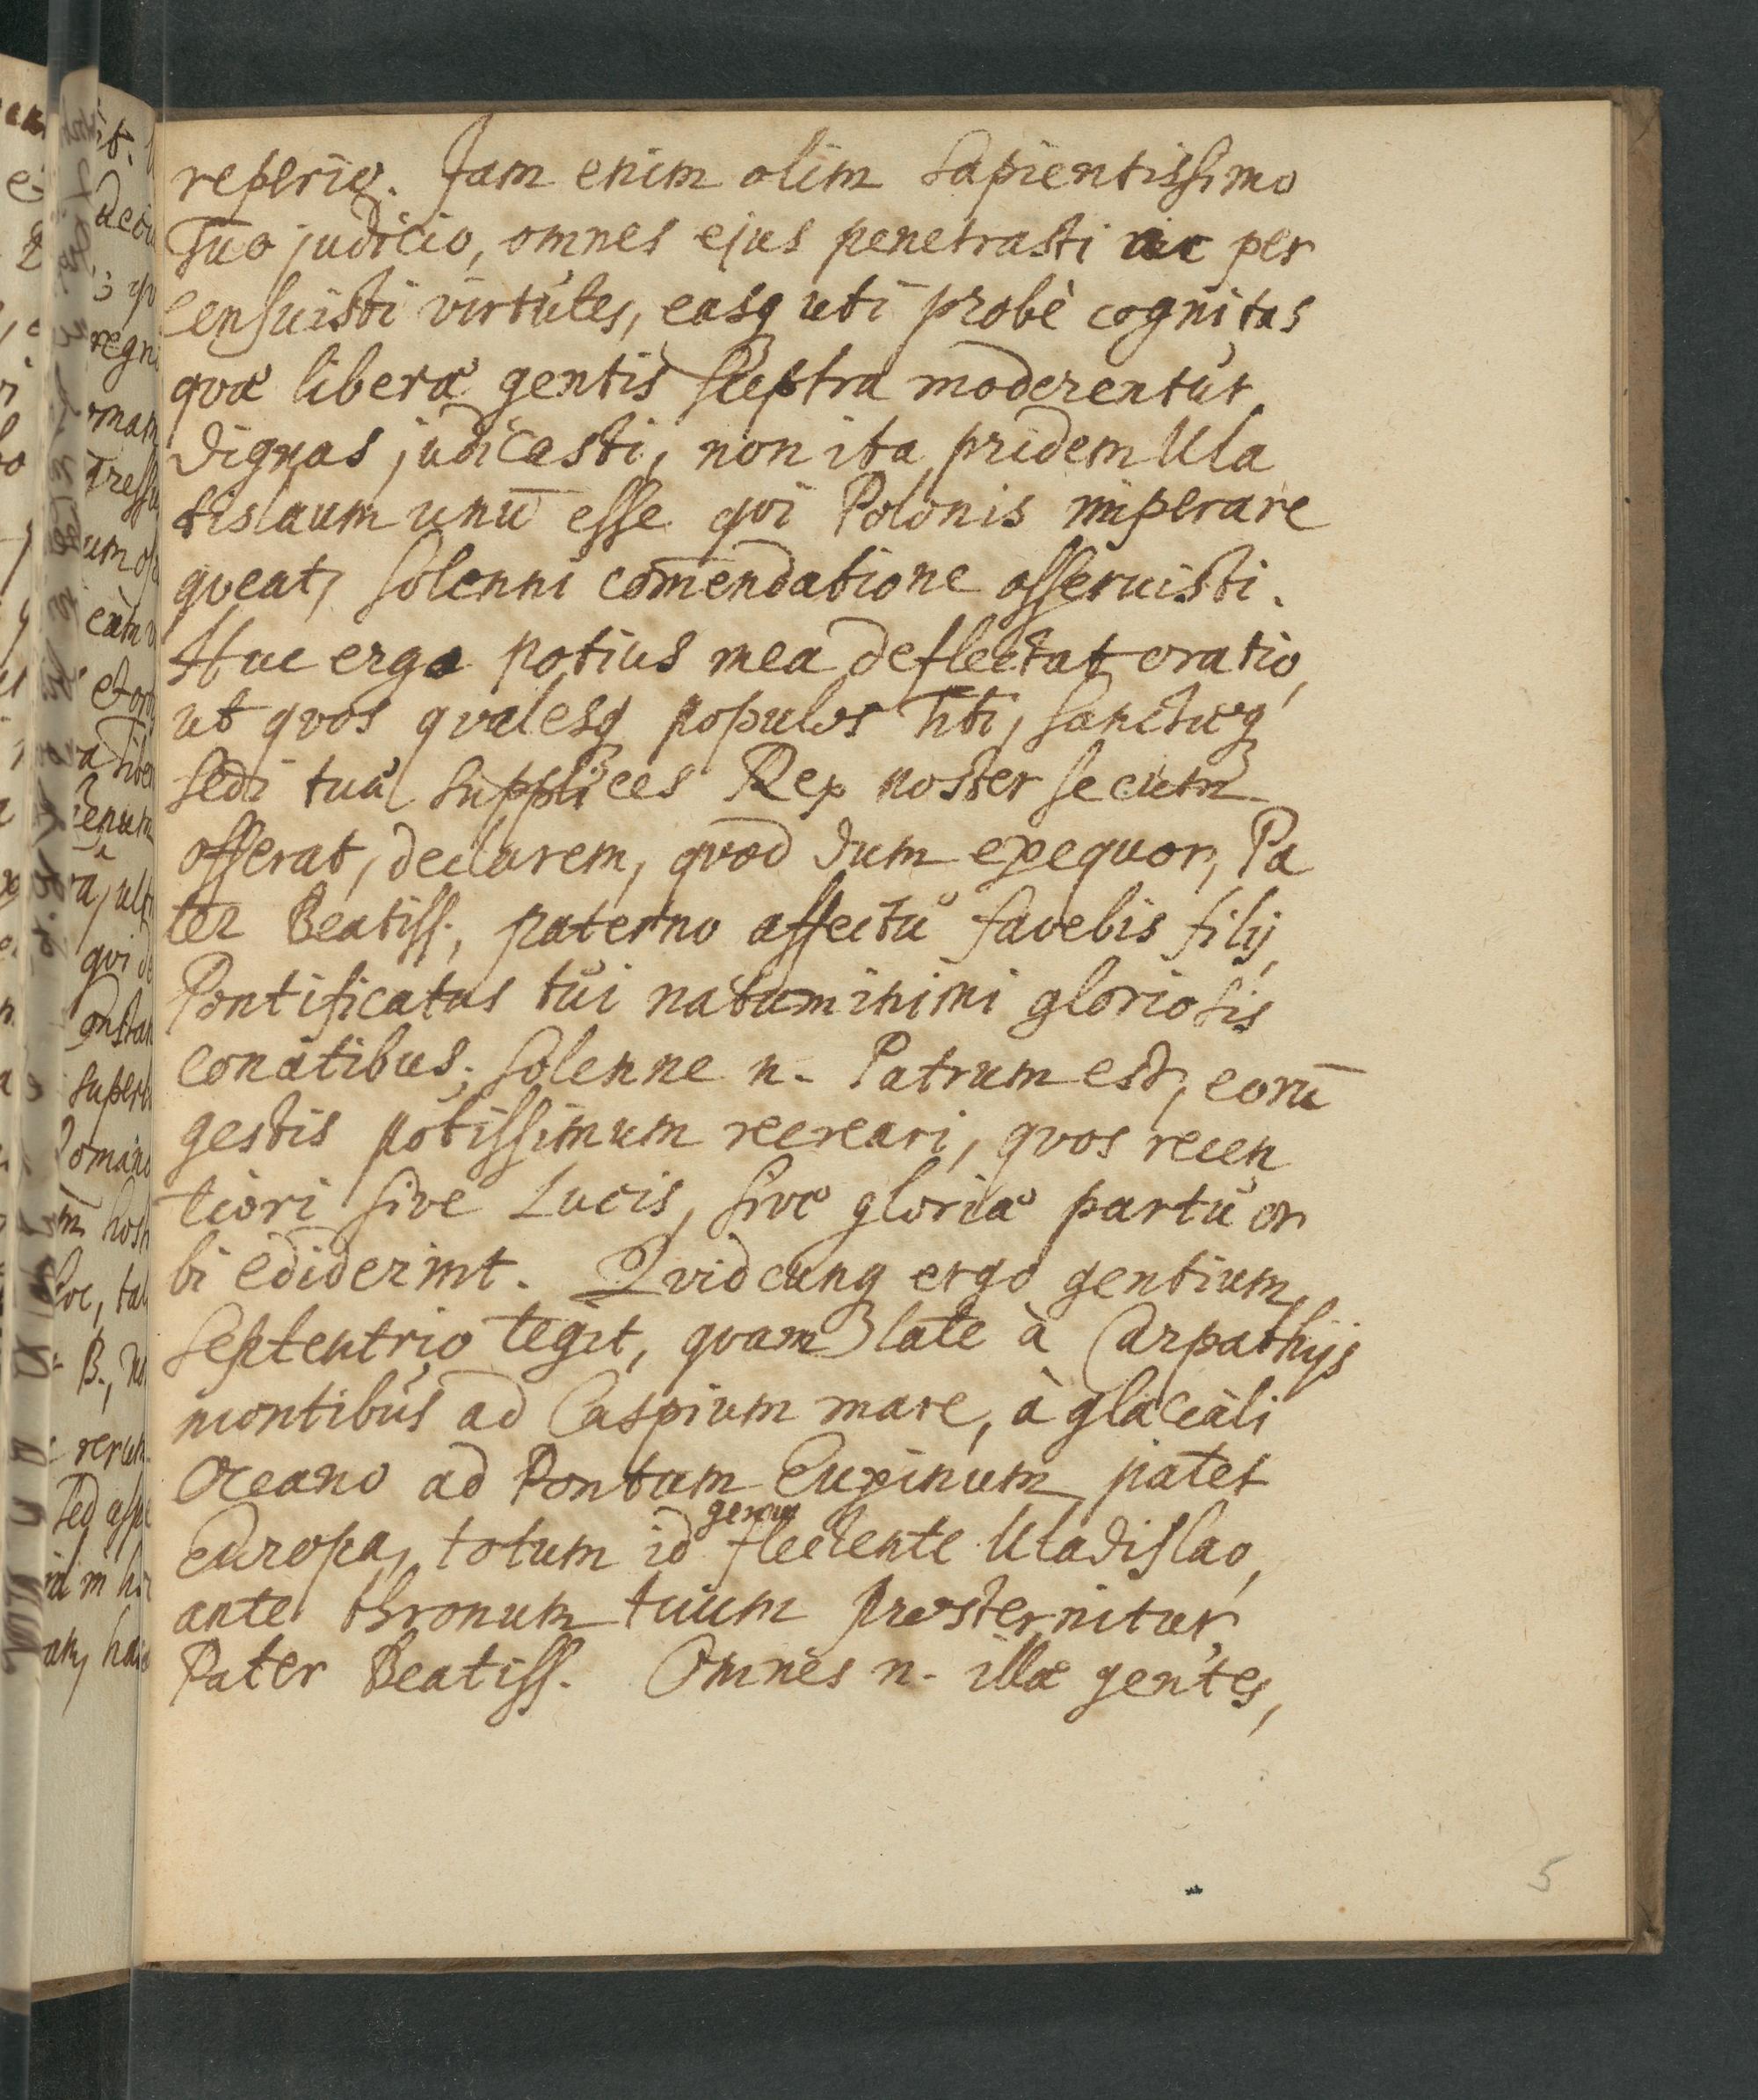 reperio. Jam enim olim sapientissimo
Tuo judicio, omnes ejus penetrasti ac per
censuisti virtutes, easq uti probè cognitas
qvæ liberæ gentis sceptra moderentur
dignas judicasti, non ita pridem Ula
dislaum unū esse qvi Polonis imperare
qveat, solenni com̄endatione asseruisti.
Huc ergo potius mea deflectat oratio,
ut qvos qvalesq populos Tibi, sanctæq
sedi tuæ supplices Rex noster secum
offerat, declarem, qvod dum exequor, Pa
ter Beatiss., paterno affectu favebis filij
Pontificatus tui natu minimi gloriosis
conatibus; solenne n. Patrum est, eorū
gestis potissimum recreari, qvos recen
tiori sive Lucis, sive gloriæ partu or
bi ediderint. Qvidcunq ergo gentium
Septentrio tegit, qvam late à Carpathijs
montibus ad Caspium mare, à glaciali
Oceano ad Pontum Euxinum patet
genua
Europa, totum id flectente Uladislao,
ante thronum tuum prosternitur
Pater Beatiss. Omnes n. illæ gentes,
5